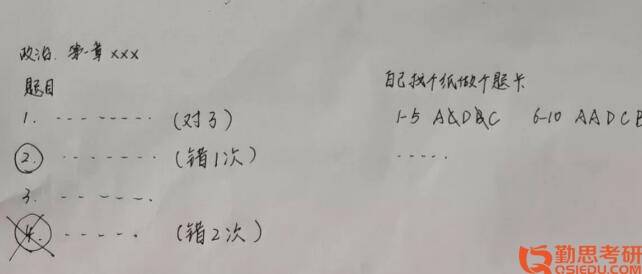 政治. 第一章 xxx
题目
1. ------- (对了)
② ------- (错1次)
3. -------
4. ----- (错2次)
自己找个纸做个题卡
1-5 ACDBC 6-10 AADCB
-----
勤思考研
QSIEDU.COM